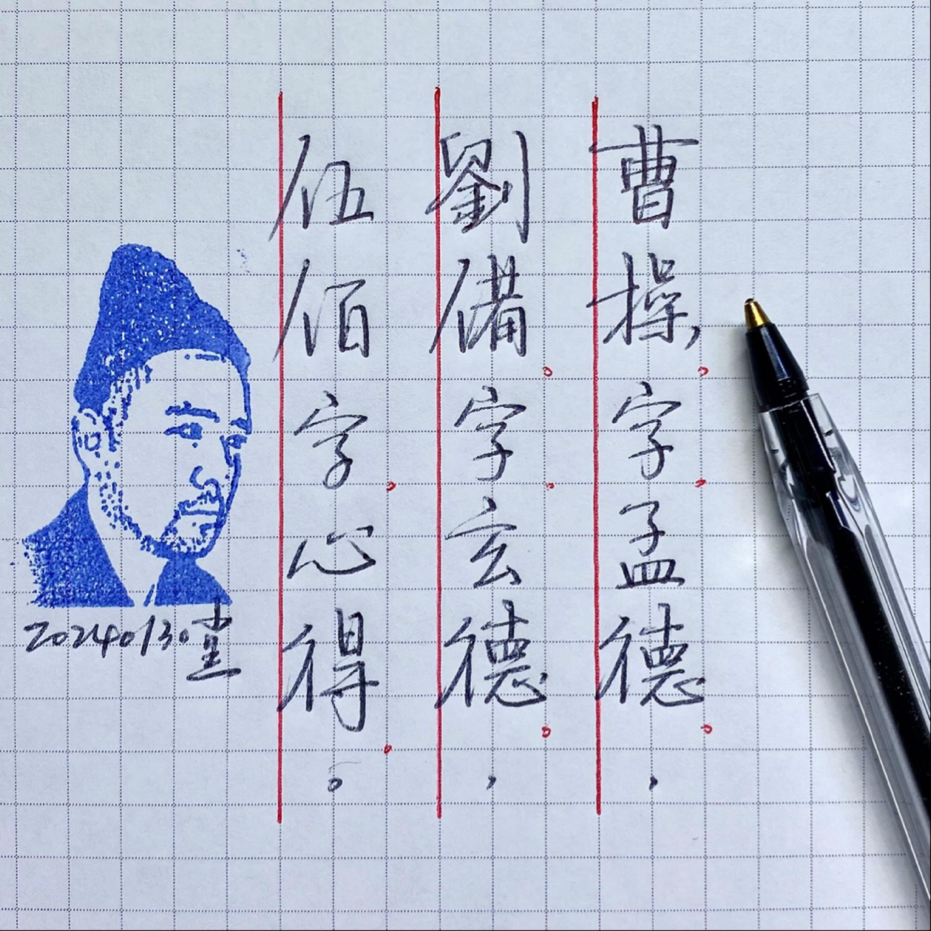 曹操,字孟德,
劉備字玄德,
伍佰字心得。
20240130堂